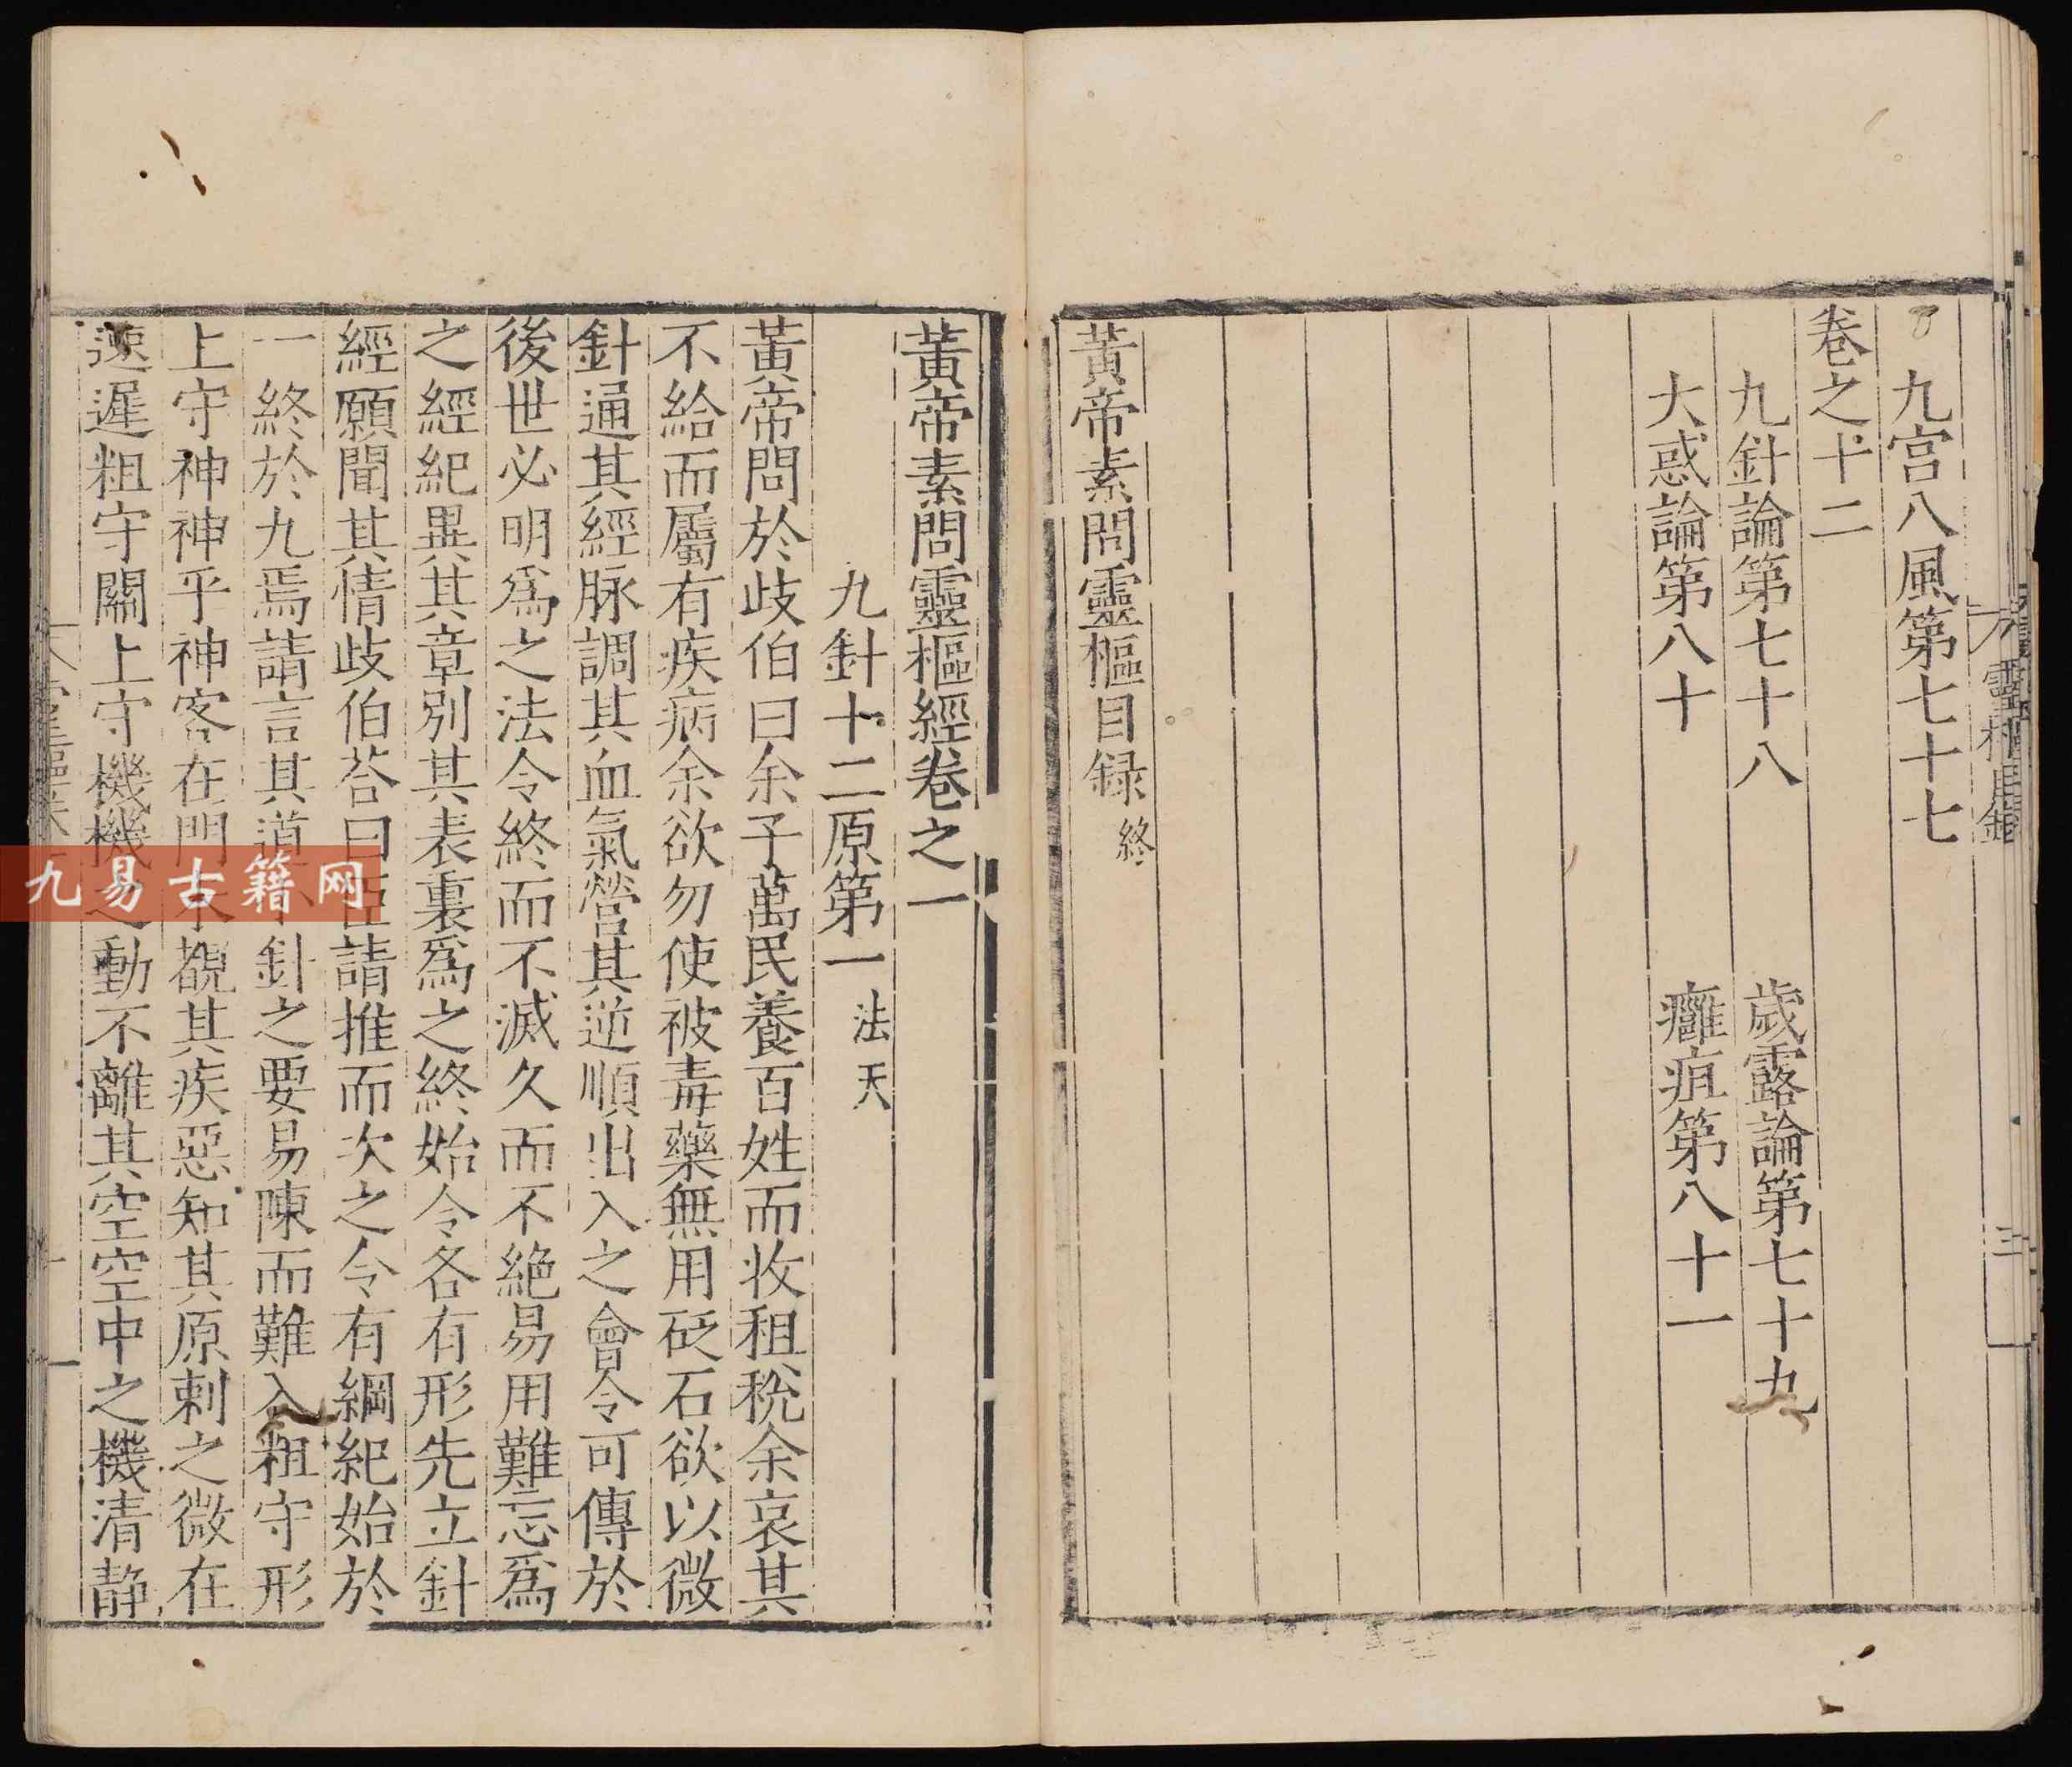 九宮八風第七十七
卷之十二
九針論第七十八　歲露論第七十九
大惑論第八十　癰疽第八十一
黃帝素問靈樞目録 終
靈樞目錄
三
黃帝素問靈樞經卷之一
九針十二原第一 法天
黃帝問於歧伯曰余子萬民養百姓而收租稅余哀其
不給而屬有疾病余欲勿使被毒藥無用砭石欲以微
針通其經脉調其血氣營其逆順出入之會令可傳於
後世必明爲之法令終而不滅久而不絶易用難忘爲
之經紀異其章別其表裏爲之終始令各有形先立針
經願聞其情歧伯荅曰臣請推而次之令有綱紀始於
一終於九焉請言其道小針之要易陳而難入粗守形
上守神神乎神客在門未覩其疾惡知其原刺之微在
速遲粗守關上守機機之動不離其空空中之機清静
九易古籍网